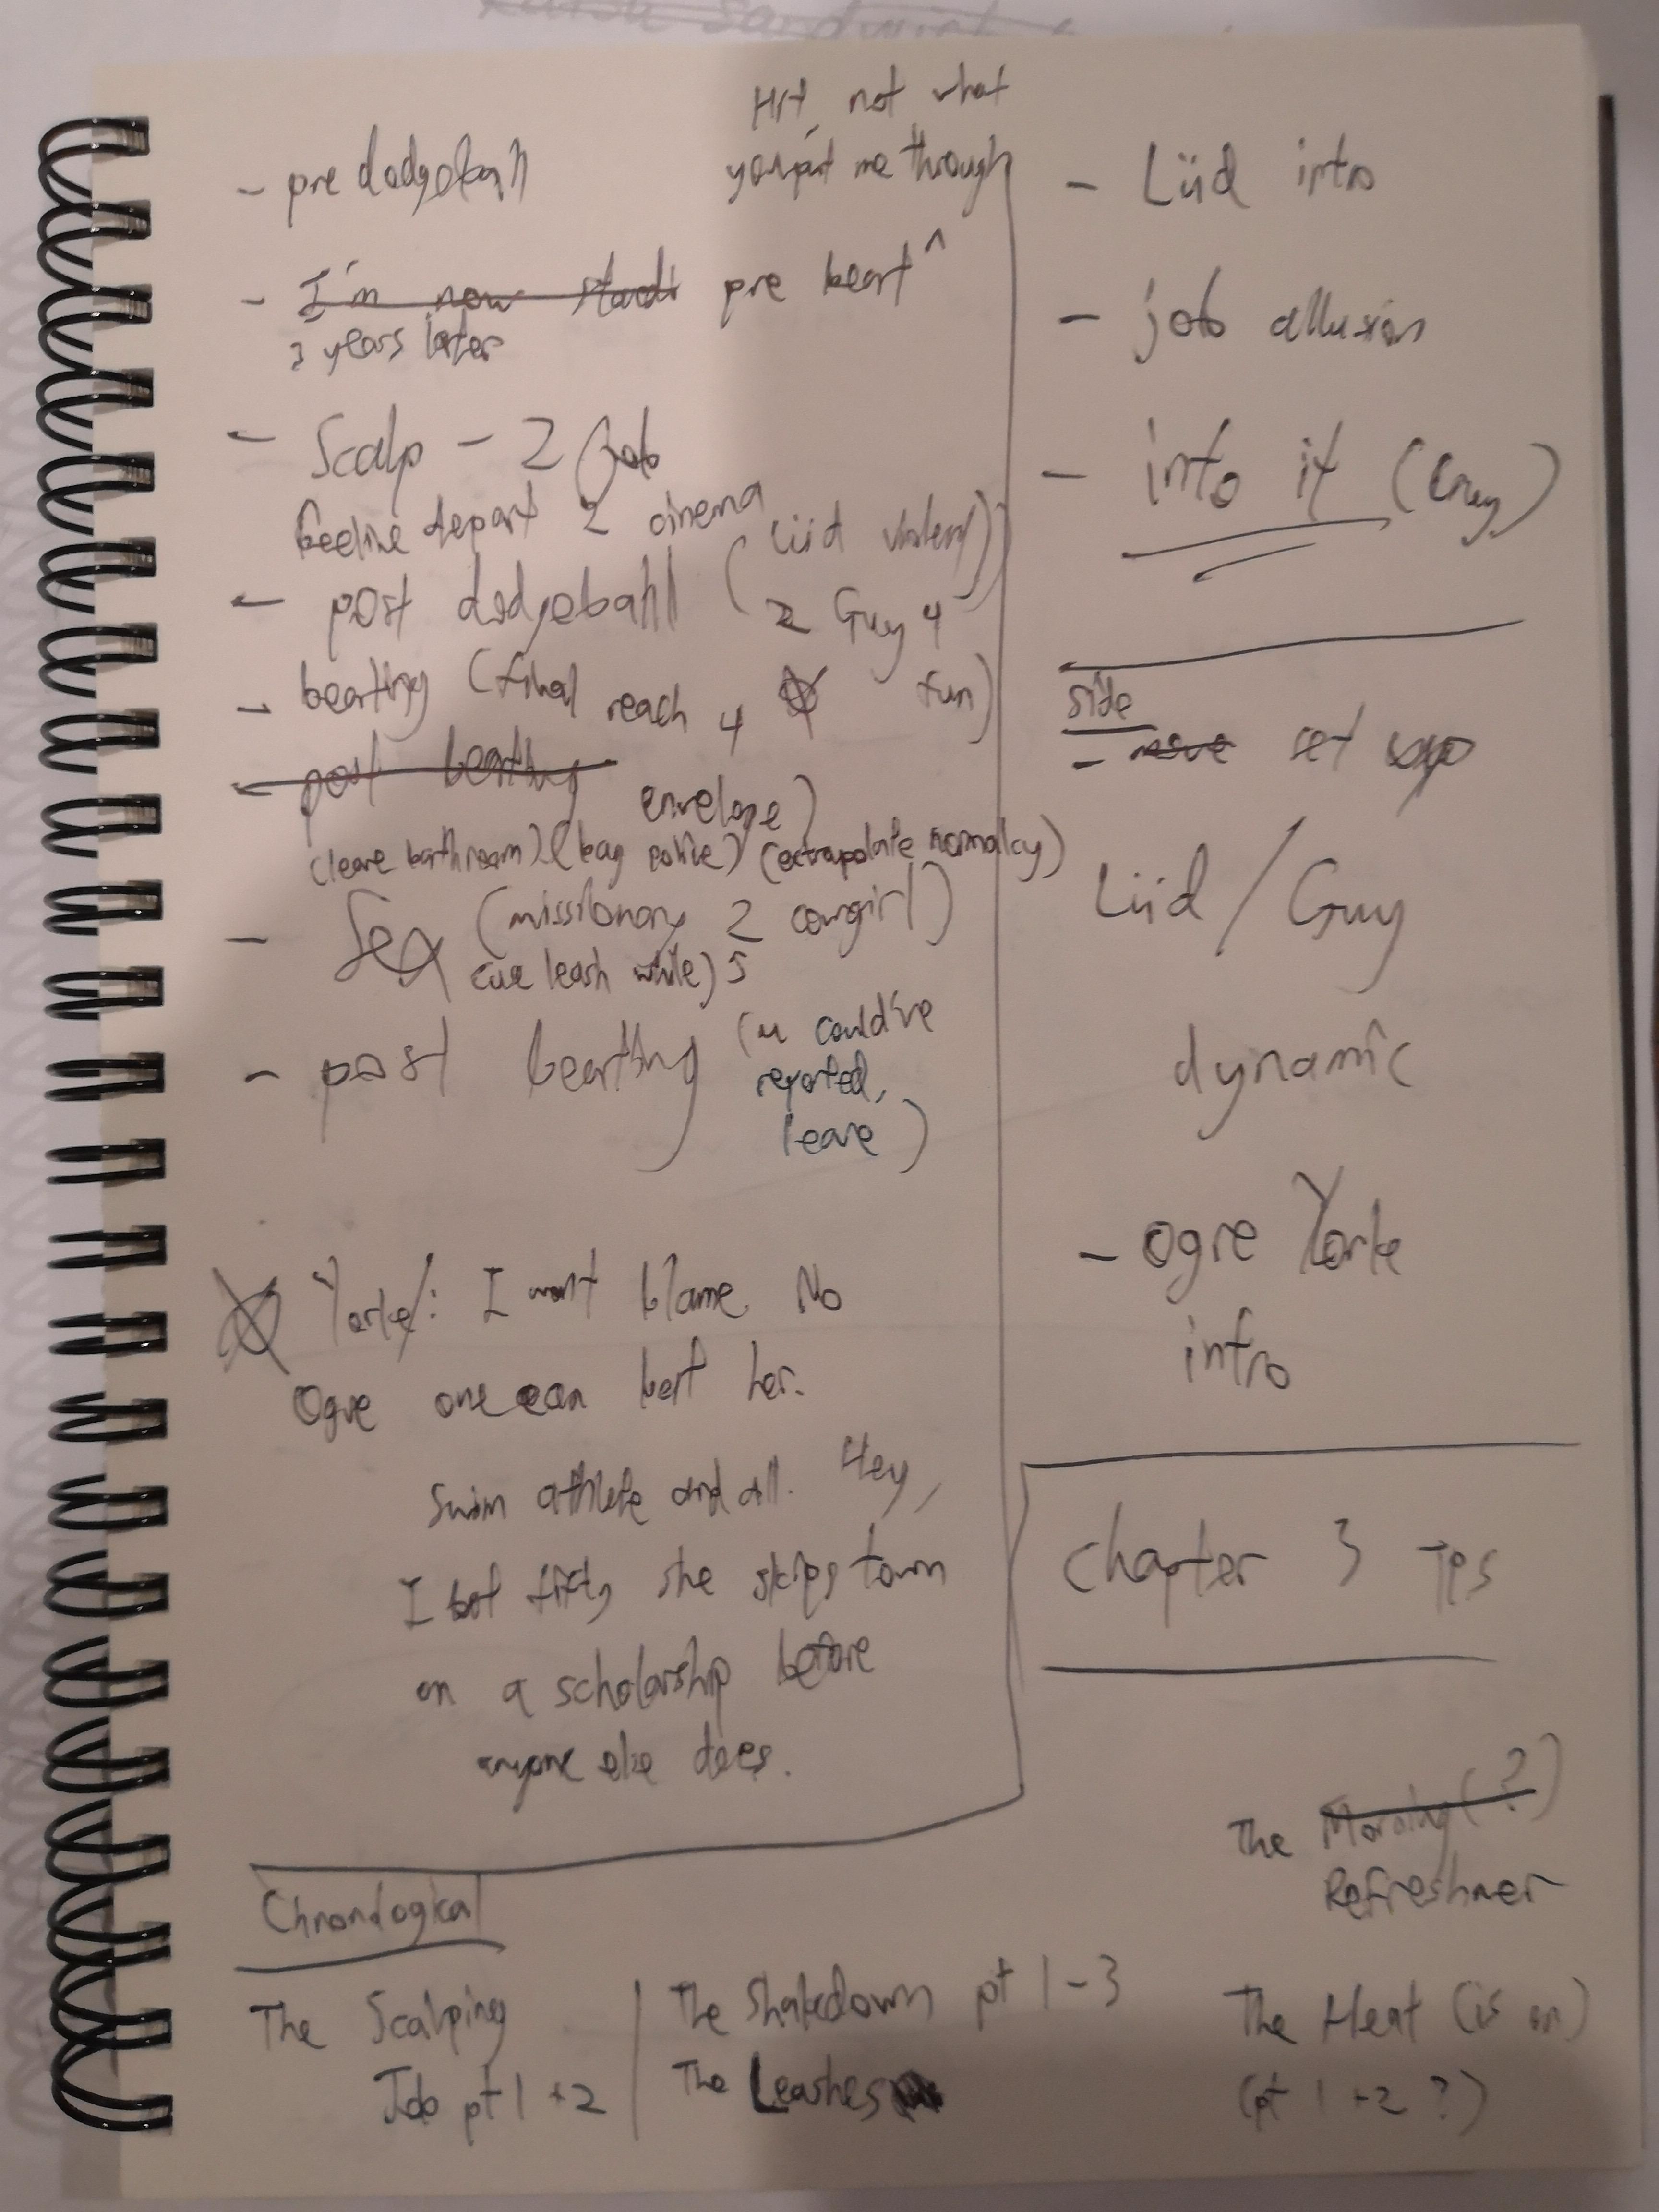 Hrt, not what
you put me through
- pre dodgeball
- I'm now pre beat ^
3 years later
- Scalp - 2 Job
Beeline depart 2 cinema
- post dodgeball (Lüd violent)
2 Guy 4
- beating (final reach 4 fun)
- post beating envelope)
(leave bathroom) (bag police) (extrapolate normalcy)
- Sex (missionary 2 cowgirl)
cue leash while) 5
- post beating (u could've
reported,
leave)
Yorke: I wont blame. No
Ogre one can best her.
Swim athlete and all. Hey,
I bet fifty she skips town
on a scholarship before
anyone else does.
- Lüd intro
- job allusion
- into it (Guy)
side
- move set up
Lüd / Guy
dynamic
- Ogre Yorke
intro
Chapter 3 Tps
Chronological
The Scalping
Job pt 1 + 2
The Shakedown pt 1 - 3
The Leashes
The Morality (?)
Refreshner
The Heat (is on)
(pt 1 + 2 ?)